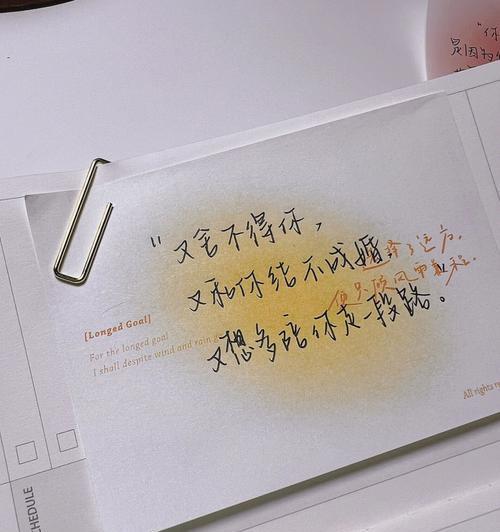 "又舍不得你,
又和你结不成婚,
又想多陪你走一段路。
[Longed Goal]
For the longed goal
I shall despite wind and rain g
选择了远方,
但只顾风雨兼程.
All rights re
HEDULE
"你
是因为你